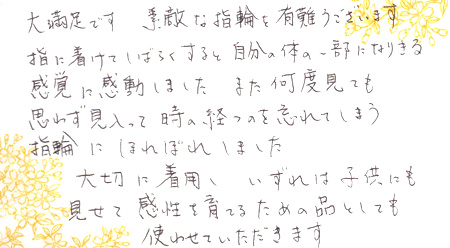 大満足です 素敵な指輪を有難うございます
指に着けてしばらくすると自分の体の一部になりきる
感覚に感動しました また何度見ても
思わず見入って時の経つのを忘れてしまう
指輪にほればれしました
大切に着用し いずれは子供にも
見せて感性を育てるための品としても
使わせていただきます